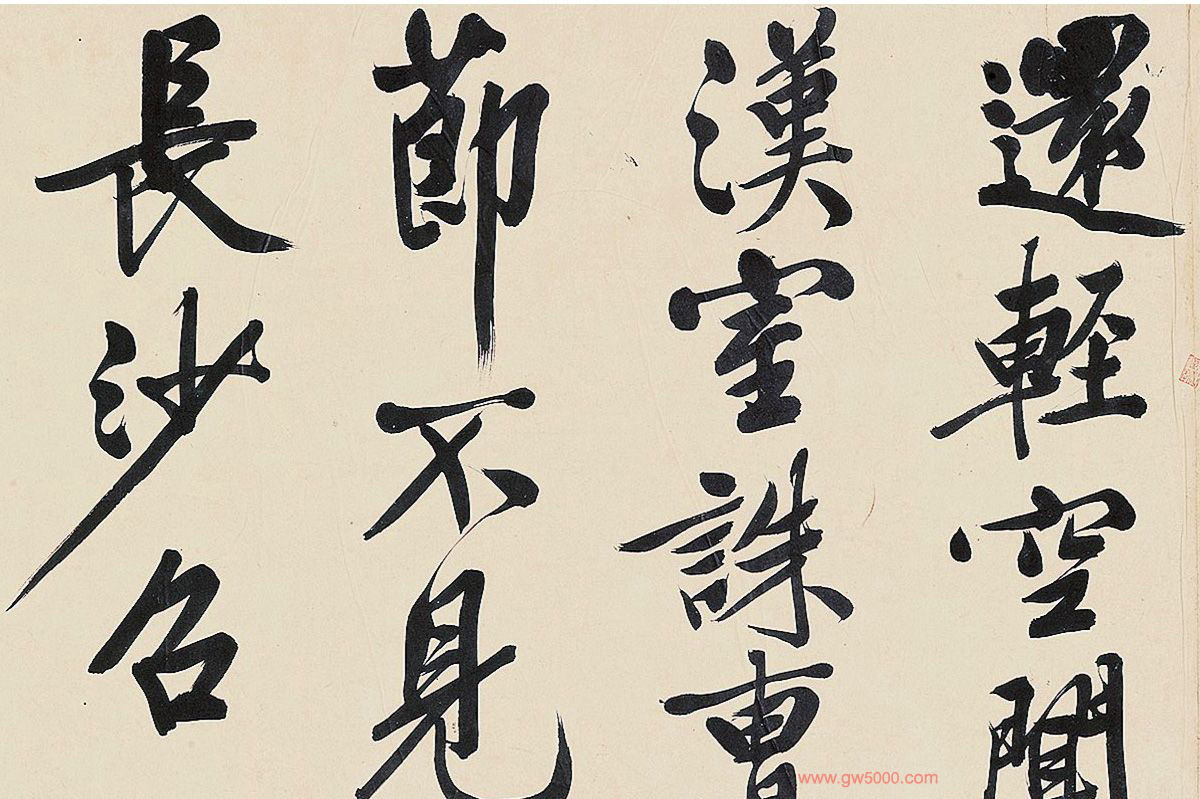 還輕空聞
漢室誅曹
節不見
長沙召
www.gw5000.com